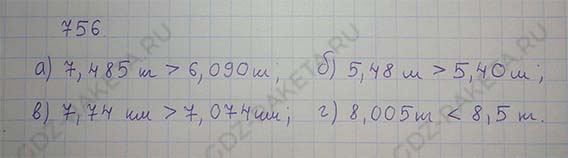 756.
а) 7,485 т > 6,090 т; б) 5,48 м > 5,40 м;
в) 7,74 км > 7,074 км; г) 8,005 т < 8,5 т.
GDZ-RAKETA.RU